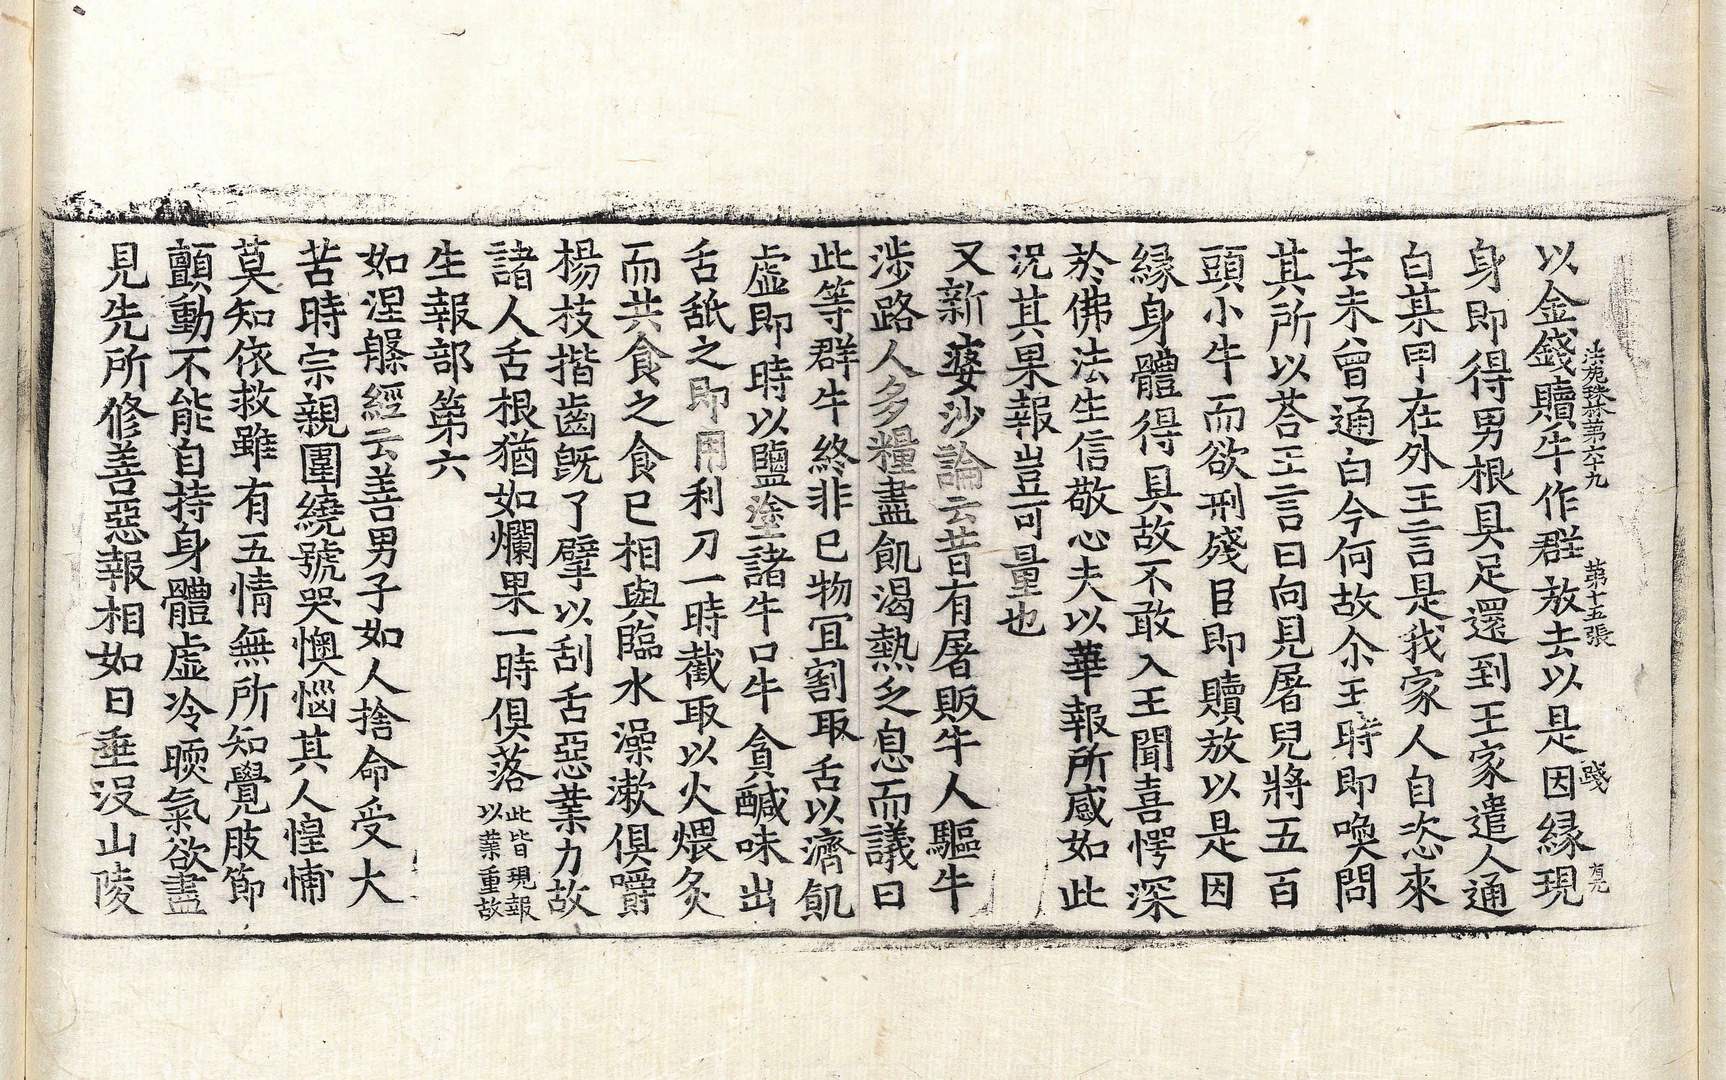 法苑珠林第六十九　第十五張　踐　有元
以金錢贖牛作群放去以是因縁現
身即得男根具足還到王家遣人通
白某甲在外王言是我家人自恣來
去未曾通白今何故尒王時即喚問
其所以荅王言曰向見屠兒將五百
頭小牛而欲刑殘目即贖放以是因
縁身體得具故不敢入王聞喜愕深
於佛法生信敬心夫以華報所感如此
況其果報豈可量也
又新婆沙論云昔有屠販牛人驅牛
涉路人多糧盡飢渴熱乏息而議曰
此等群牛終非已物冝割取舌以濟飢
虛即時以鹽塗諸牛口牛貪鹹味出
舌舐之即用利刀一時截取以火煨炙
而共食之食已相與臨水澡漱俱嚼
楊枝揩齒旣了擘以刮舌惡業力故
諸人舌根猶如爛果一時俱落此皆現報以業重故
生報部第六
如涅槃經云善男子如人捨命受大
苦時宗親圍繞號哭懊惱其人惶怖
莫知依救雖有五情無所知覺肢節
顫動不能自持身體虛冷暖氣欲盡
見先所修善惡報相如日垂没山陵